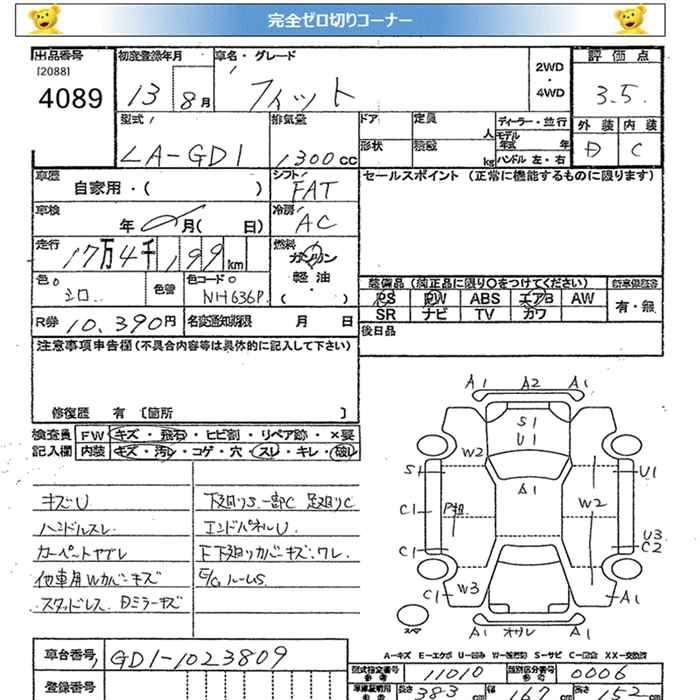 完全ゼロ切りコーナー
出品番号 初度登録年月 車名・グレード 2WD・4WD 評価点
[2088]
4089 13 8月 フィット 3.5.
型式 排気量 ドア 定員 人 ディーラー・並行 外装 内装
LA-GD1 1300cc 形状 積載 kg モデル年式 年 ハンドル 左・右 D C
車歴 シフト セールスポイント (正常に機能するものに限ります)
自家用・( ) FAT
車検 冷房
年 月( 日) AC
走行 燃料
17万4千199km ガソリン・軽油・( )
色 色替 色コード 装備品 (純正品に限り〇をつけてください)
シロ NH636P PS PW ABS エアB AW 有・無
SR ナビ TV カワ
R券 10,390円 名変通知期限 月 日 後日品
注意事項申告欄 (不具合内容等は具体的に記入して下さい)
修復歴 有 [箇所 ]
検査員 FW キズ・飛石・ヒビ割・リペア跡・×要
記入欄 内装 キズ・汚レ・コゲ・穴・スレ・キレ・破レ
キズU 下廻りS 一部C 足廻りC
ハンドルスレ エンドパネルU
カーペットヤブレ F下廻りカバーキズ、ワレ
他車用Wカバーキズ E/GルームS
スタッドレス Dミラーキズ
A1 A2 A1
S1
U1
W2 A1
S1 U1
C1 P粗 W2
U3
C1 C2
C1 W3 A1
スペア A1 オサレ A1
A-キズ E-エクボ U-凹み W-補修跡 S-サビ C-腐食 XX-交換済
車台番号 GD1-1023809
型式指定番号 11010 類別区分番号 0006
登録番号
長さ 383 cm 幅 167 cm 高さ 152 cm